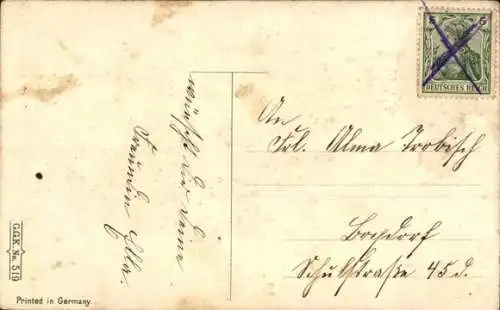 wünscht Dir Deine
Freundin Ella.
5 5
DEUTSCHES REICH
An
Frl. Alma Trobisch
Borsdorf
Schulstraße 45 d.
G.G.K. No. 519
Printed in Germany.